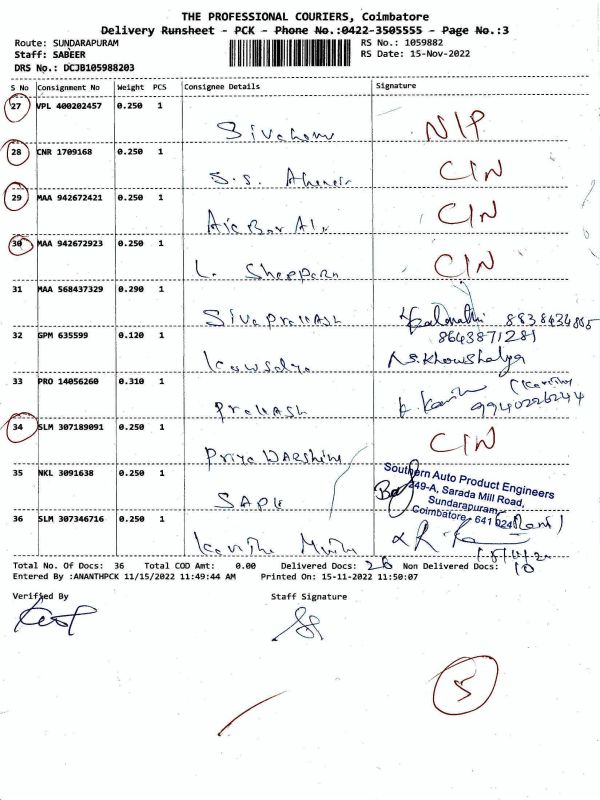 THE PROFESSIONAL COURIERS, Coimbatore
Delivery Runsheet - PCK - Phone No.:0422-3505555 - Page No.:3
Route: SUNDARAPURAM
Staff: SABEER
DRS No.: DCJB105988203
RS No.: 1059882
RS Date: 15-Nov-2022
S No Consignment No Weight PCS Consignee Details Signature
27 VPL 400202457 0.250 1
N/P
28 CNR 1709168 0.250 1
S.S.
C/N
29 MAA 942672421 0.250 1
C/N
30 MAA 942672923 0.250 1
L.
C/N
31 MAA 568437329 0.290 1
SivaprakAsh
8643871281
32 GPM 635599 0.120 1
Kowsalya
33 PRO 14056260 0.310 1
PrakAsh
9940226244
34 SLM 307189091 0.250 1
Priya DARshini
C/N
35 NKL 3091638 0.250 1
SAPE
Southern Auto Product Engineers
249-A, Sarada Mill Road,
Sundarapuram,
Coimbatore - 641 024
36 SLM 307346716 0.250 1
Total No. Of Docs: 36 Total COD Amt: 0.00 Delivered Docs: 26 Non Delivered Docs: 10
Entered By :ANANTHPCK 11/15/2022 11:49:44 AM Printed On: 15-11-2022 11:50:07
Verified By Staff Signature
5